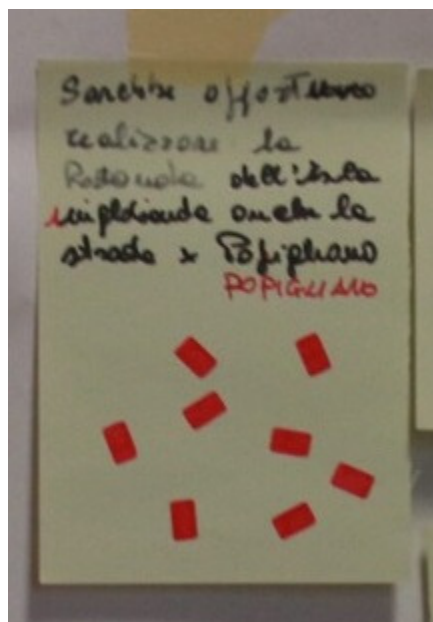 Sarebbe opportuno
realizzare la
Rotonda dell'Isla
anche la
strada x Popigliano
POPIGLIANO